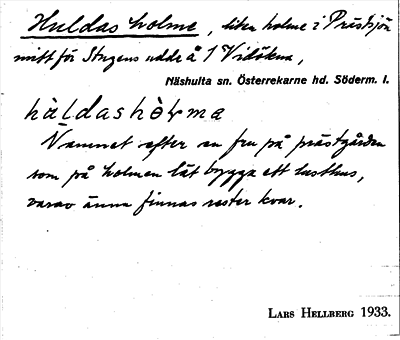 Huldas holme, liten holme i Prästsjön
mitt för Stugens udde å 1 Vidökna,
Näshulta sn. Österrekarne hd. Söderm. l.
hɯ̀ldashòlma
Namnet efter en fru på prästgården
som på holmen lät bygga ett lusthus,
varav ännu finnas rester kvar.
LARS HELLBERG 1933.